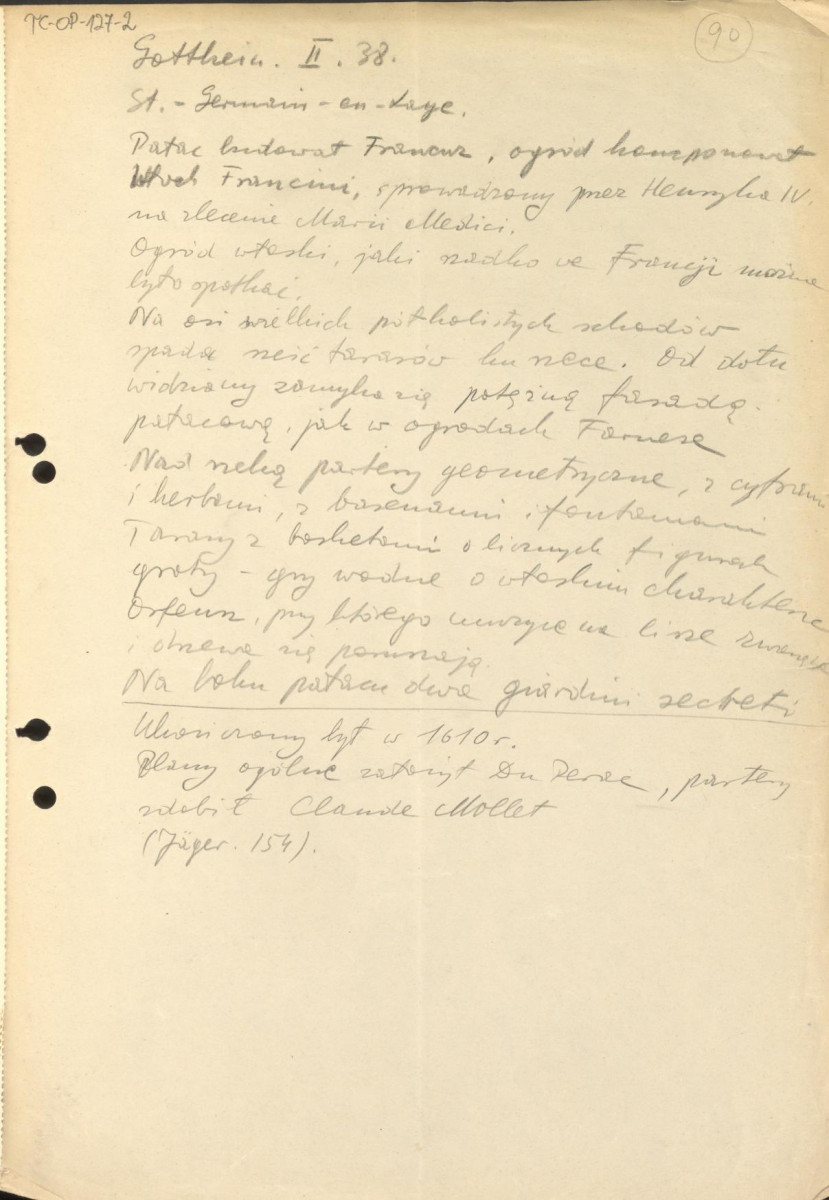 TC-OP-127-2
90
Gotthein. II. 38.
St.-Germain-en-Laye.
Pałac budował Francuz, ogród komponował
Włoch Francini, sprowadzony przez Henryka IV.
na zlecenie Marii Medici.
Ogród włoski, jaki rzadko we Francji można
było spotkać.
Na osi wielkich półkolistych schodów
spada sześć tarasów ku rzece. Od dołu
widziany zamyka się potężną fasadą
pałacową, jak w ogrodach Farnese
Nad rzeką partery geometryczne, z cyframi
i herbami, z basenami i fontanami
Tarasy z bosketami o licznych figurach
groty - gry wodne o włoskim charakterze
Orfeusz, przy którego muzyce na lirze zwierzęta
i drzewa się poruszają.
Na boku pałacu dwa giardini secreti
Ukończony był w 1610 r.
Plany ogólne założył Du Perac, partery
zdobił Claude Mollet
(Jäger. 154).